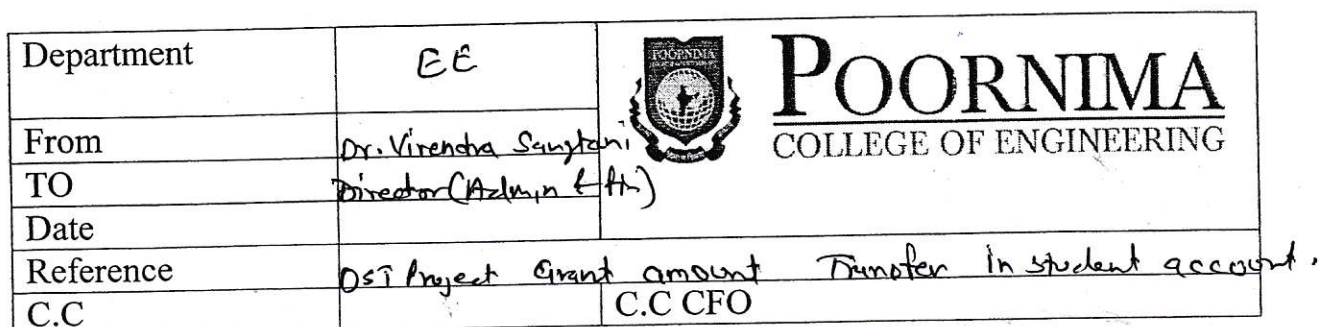 Department EE
POORNIMA
COLLEGE OF ENGINEERING
From Dr. Virendra Sangtani
TO Director (Admin &
Date
Reference DST Project Grant amount Transfer in student account.
C.C C.C CFO